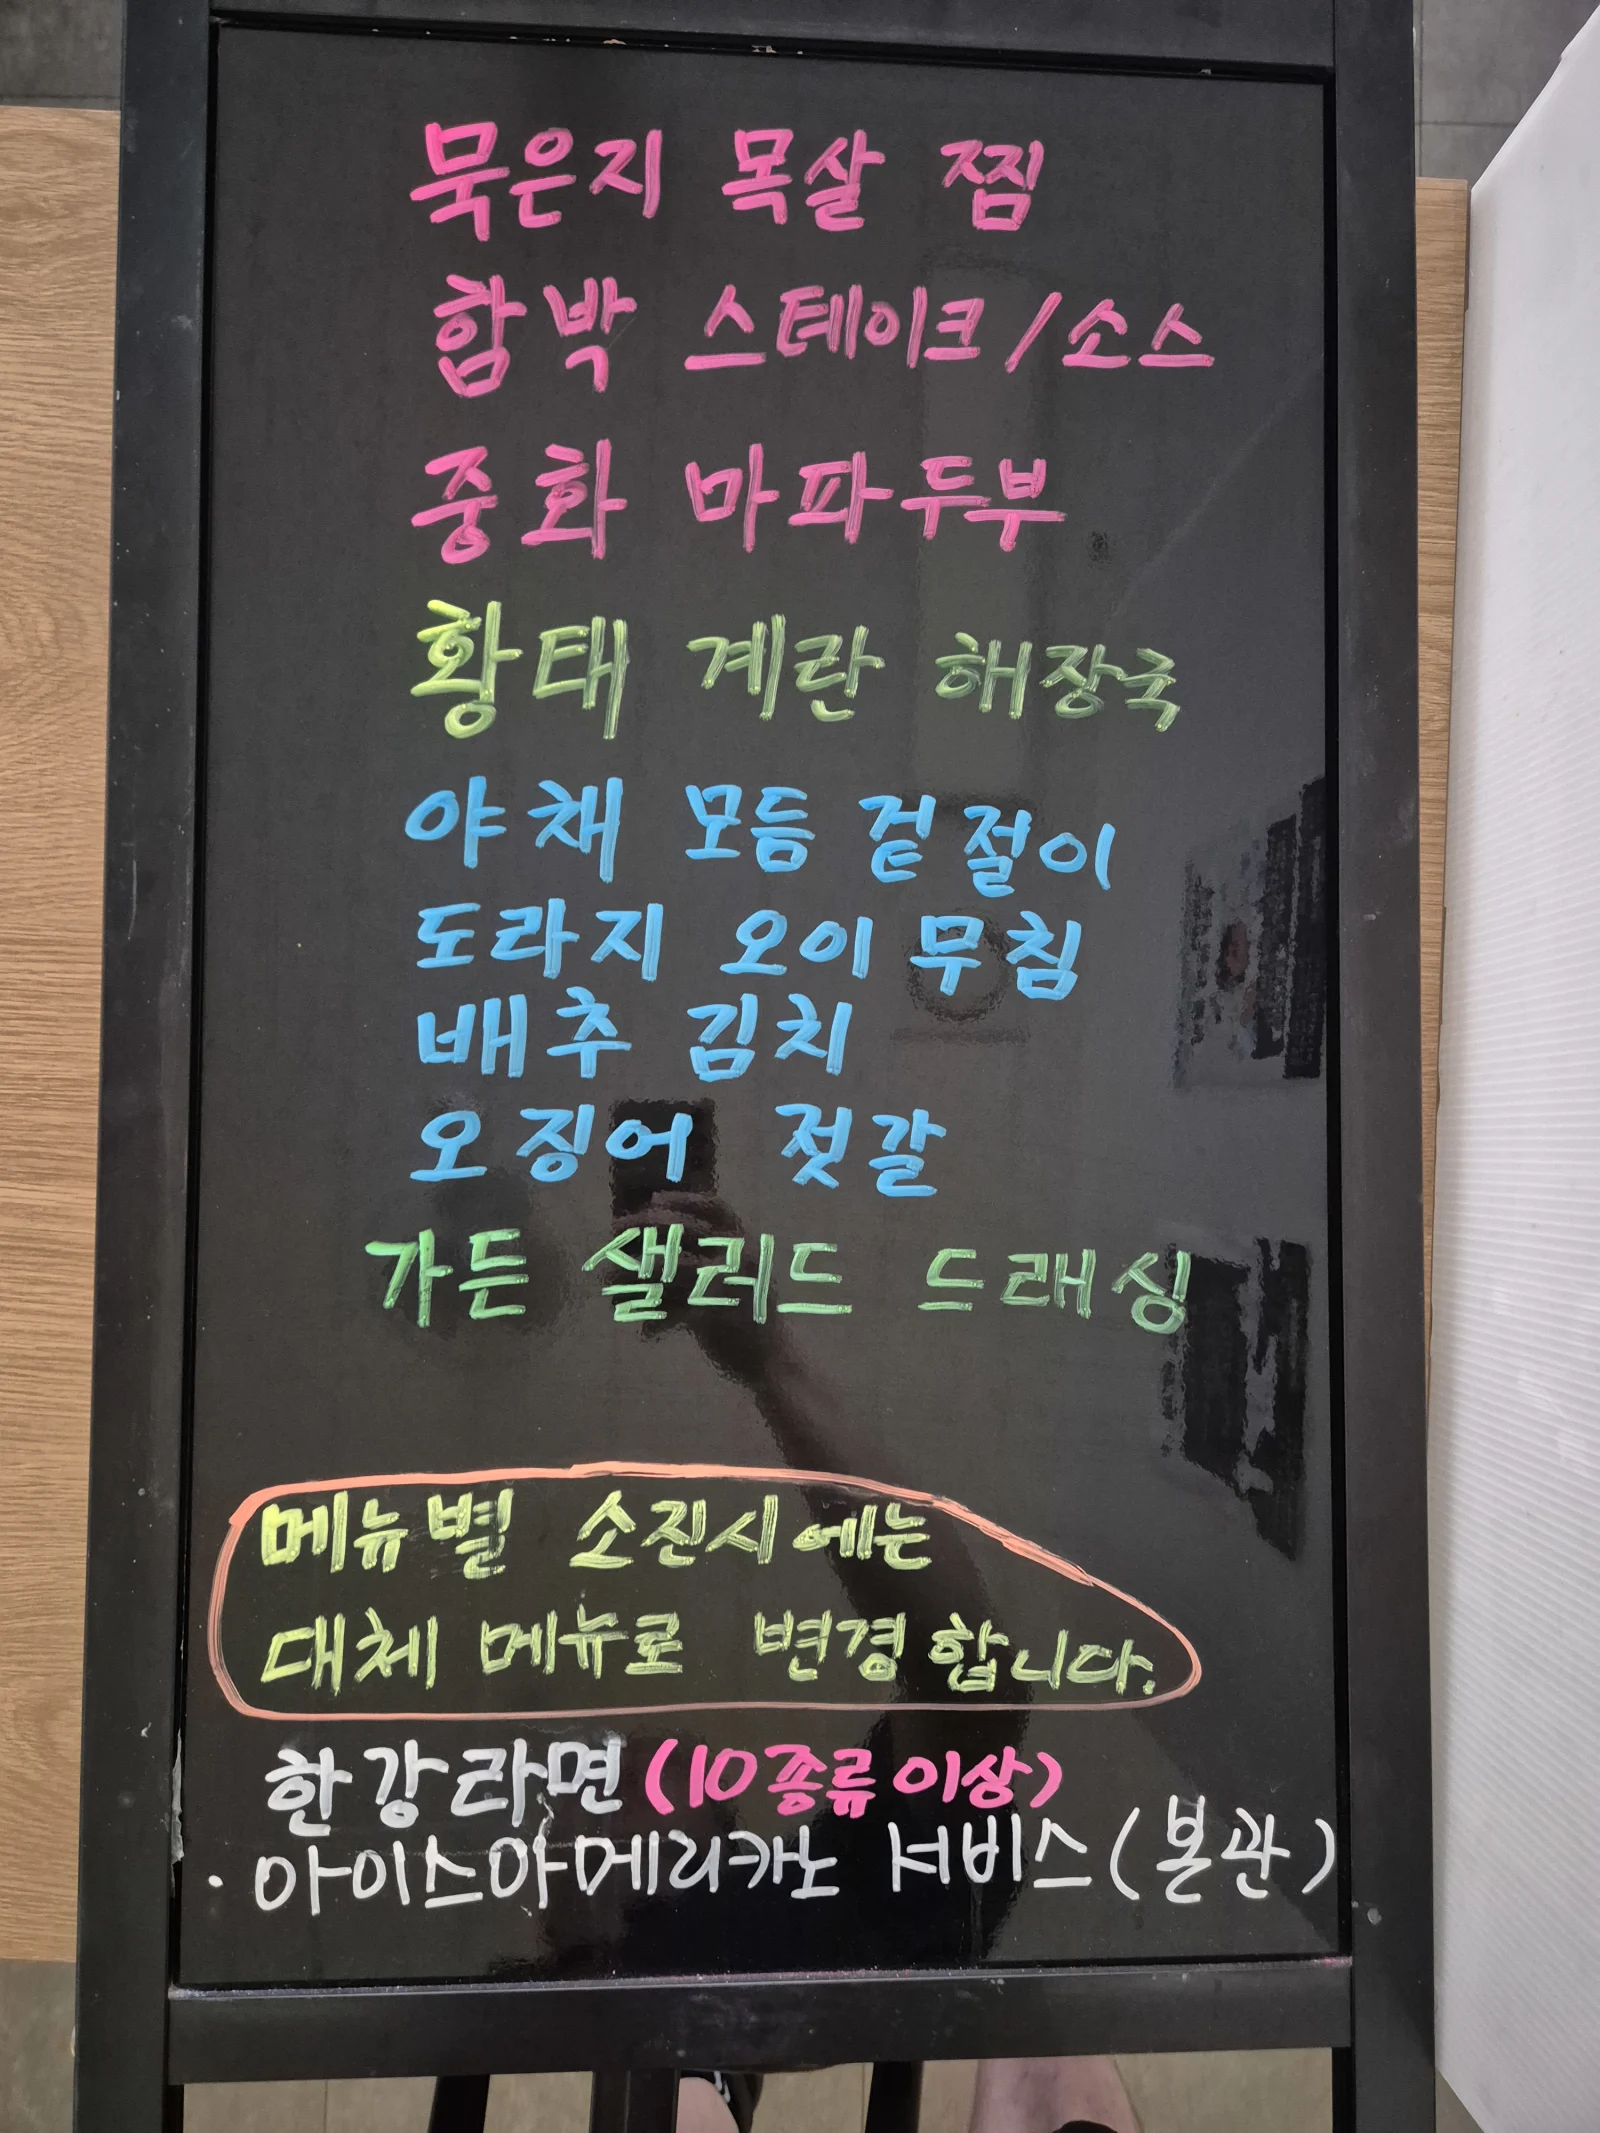 묵은지 목살 찜
함박 스테이크/소스
중화 마파두부
황태 계란 해장국
야채 모듬 겉절이
도라지 오이 무침
배추 김치
오징어 젓갈
가든 샐러드 드래싱
메뉴별 소진시에는
대체 메뉴로 변경합니다.
한강라면(10종류이상)
· 아이스아메리카노 서비스(본관)